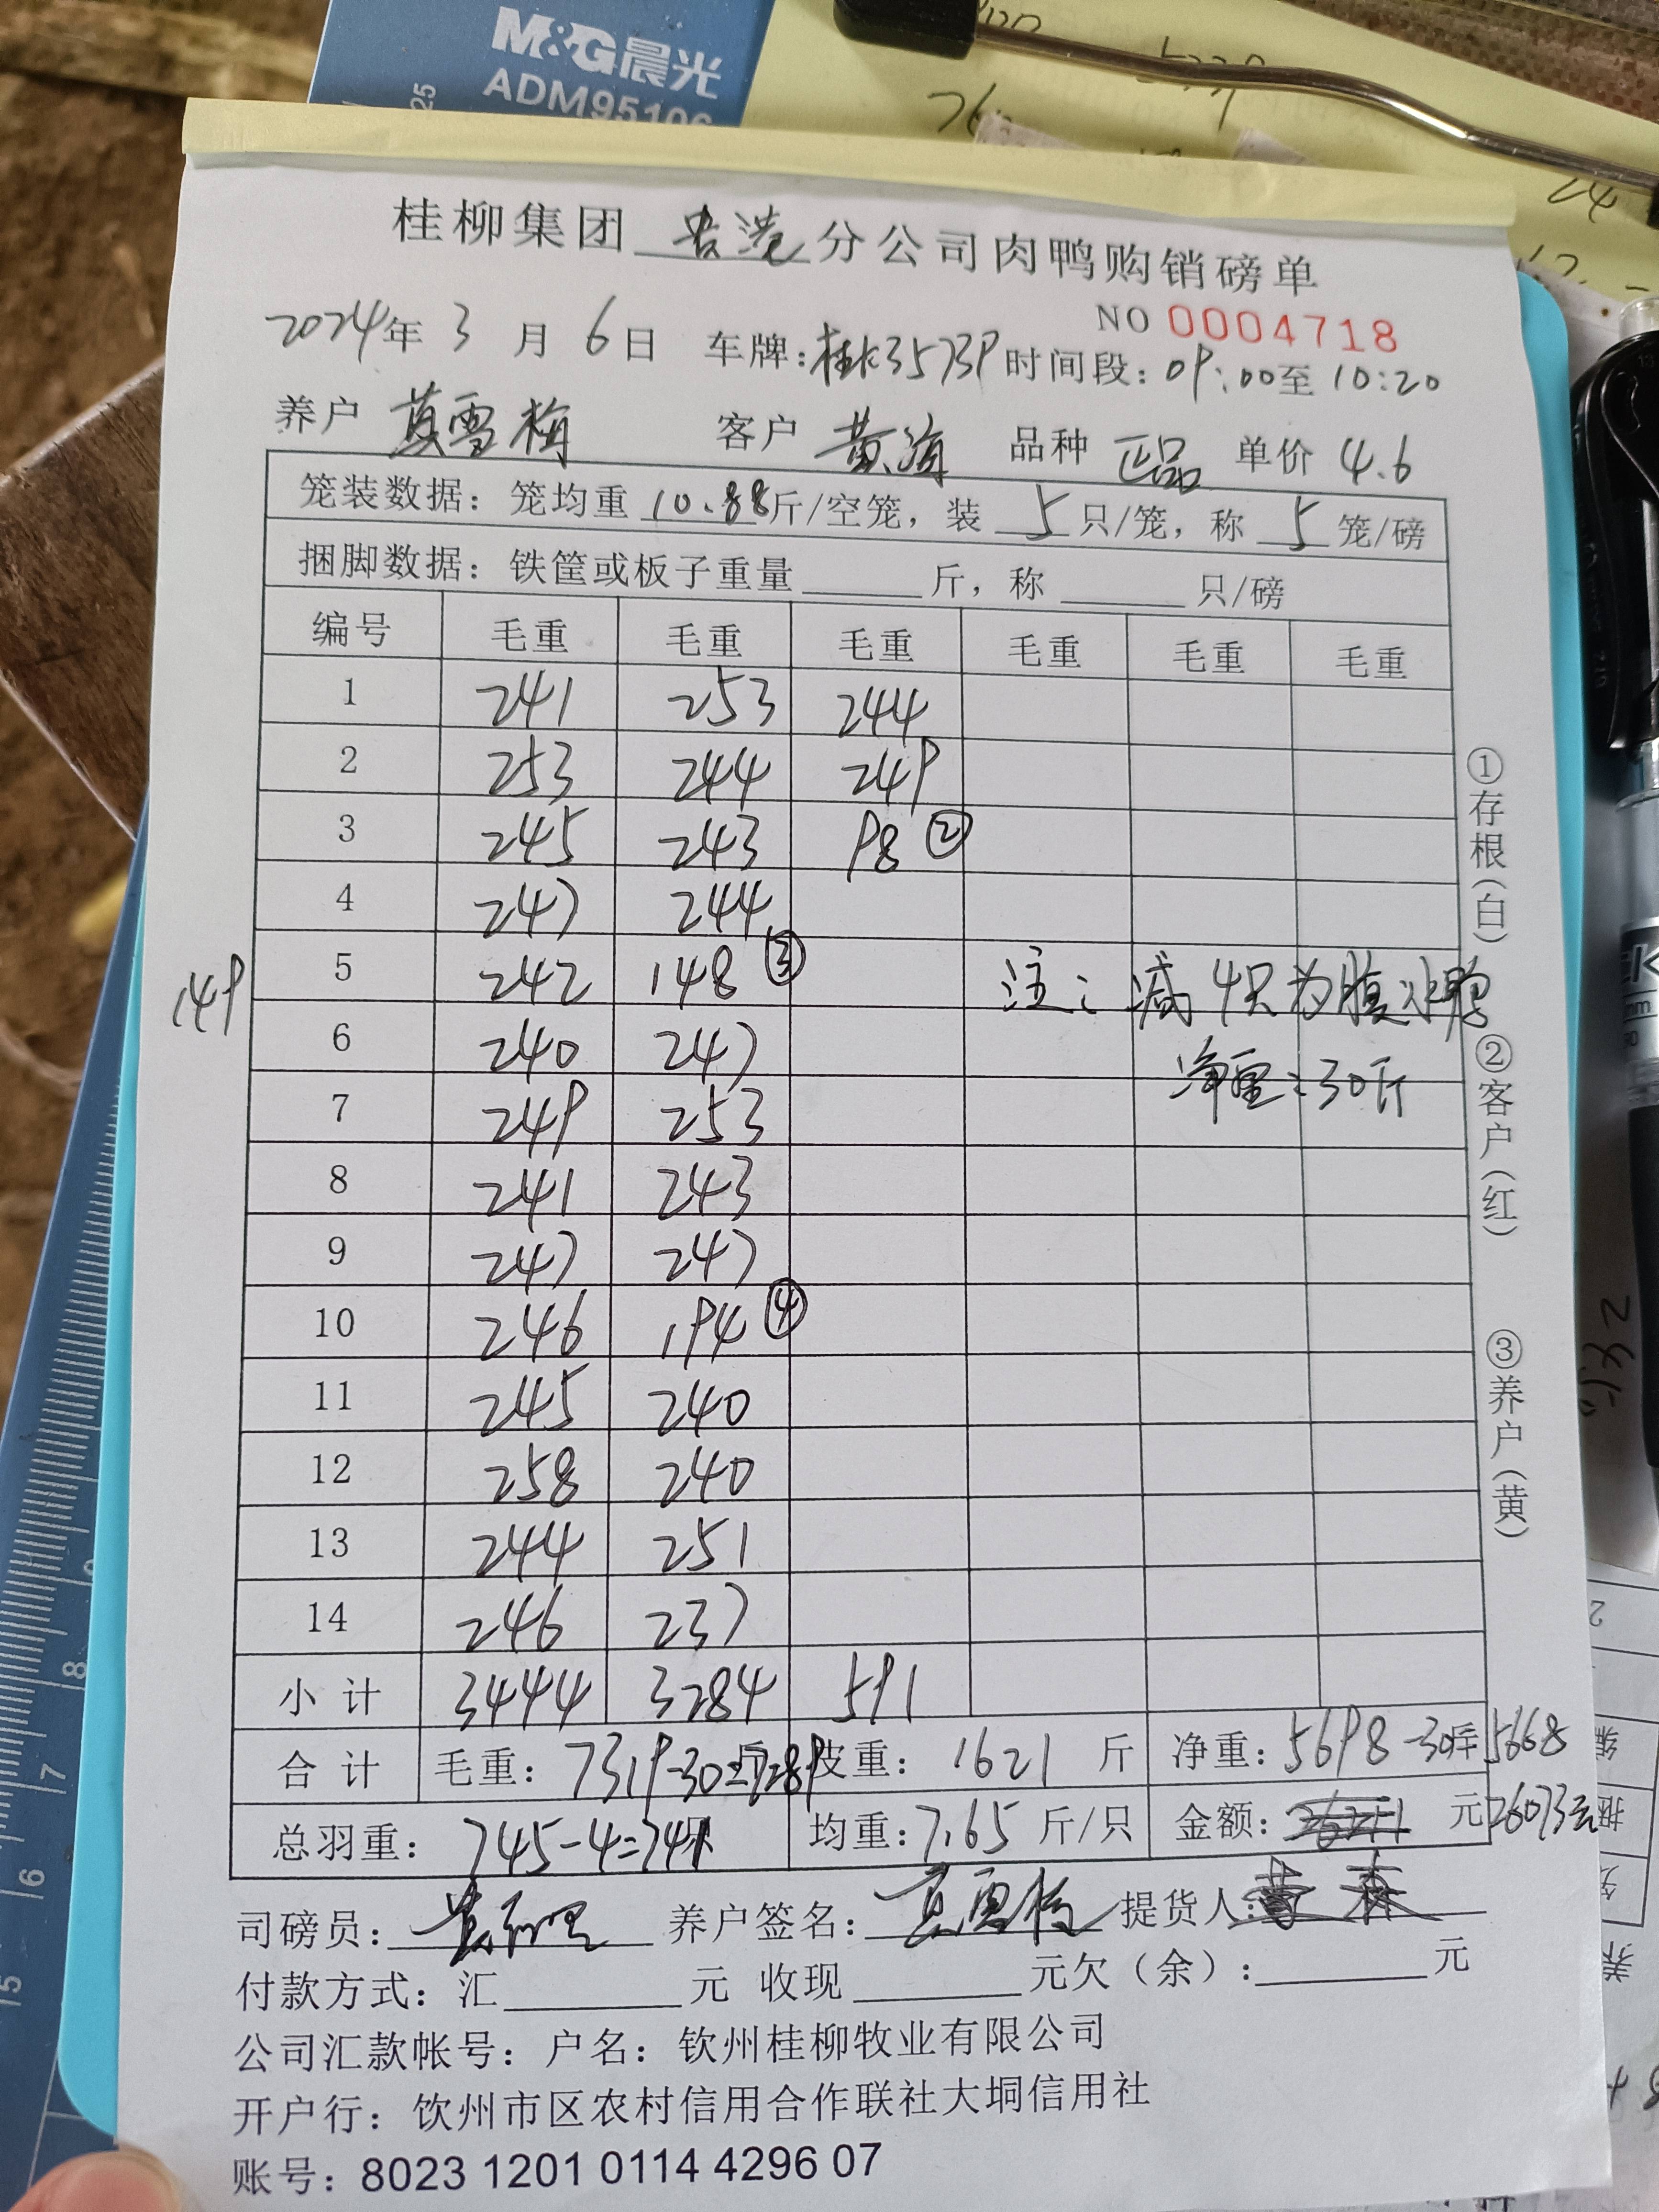 M&G晨光
ADM95106
桂柳集团 贵港 分公司肉鸭购销磅单
NO 0004718
2024年 3 月 6 日 车牌:桂K3573P 时间段: 09:00至 10:20
养户 莫雪梅 客户 黄海 品种 正品 单价 4.6
笼装数据: 笼均重 10.88 斤/空笼, 装 5 只/笼, 称 5 笼/磅
捆脚数据: 铁筐或板子重量______斤, 称______只/磅
编号 毛重 毛重 毛重 毛重 毛重 毛重
1 241 253 244
2 253 244 249
3 245 243 98 ②
4 247 244
5 242 148 ③
149
注: 减4只为腹水鸭
6 240 247
净重:30斤
7 249 253
8 241 243
9 247 247
10 246 194 ④
11 245 240
12 258 240
13 244 251
14 246 237
小 计 3444 3284 591
合 计 毛重: 7319-30=7289 斤 皮重: 1621 斤 净重: 5698-30斤 5668
总羽重: 745-4=741只 均重: 7.65 斤/只 金额: 元 26073元
①存根(白) ②客户(红) ③养户(黄)
司磅员: 养户签名: 莫雪梅 提货人:
付款方式: 汇______元 收现______元欠(余):______元
公司汇款帐号: 户名: 钦州桂柳牧业有限公司
开户行: 钦州市区农村信用合作联社大垌信用社
账号: 8023 1201 0114 4296 07